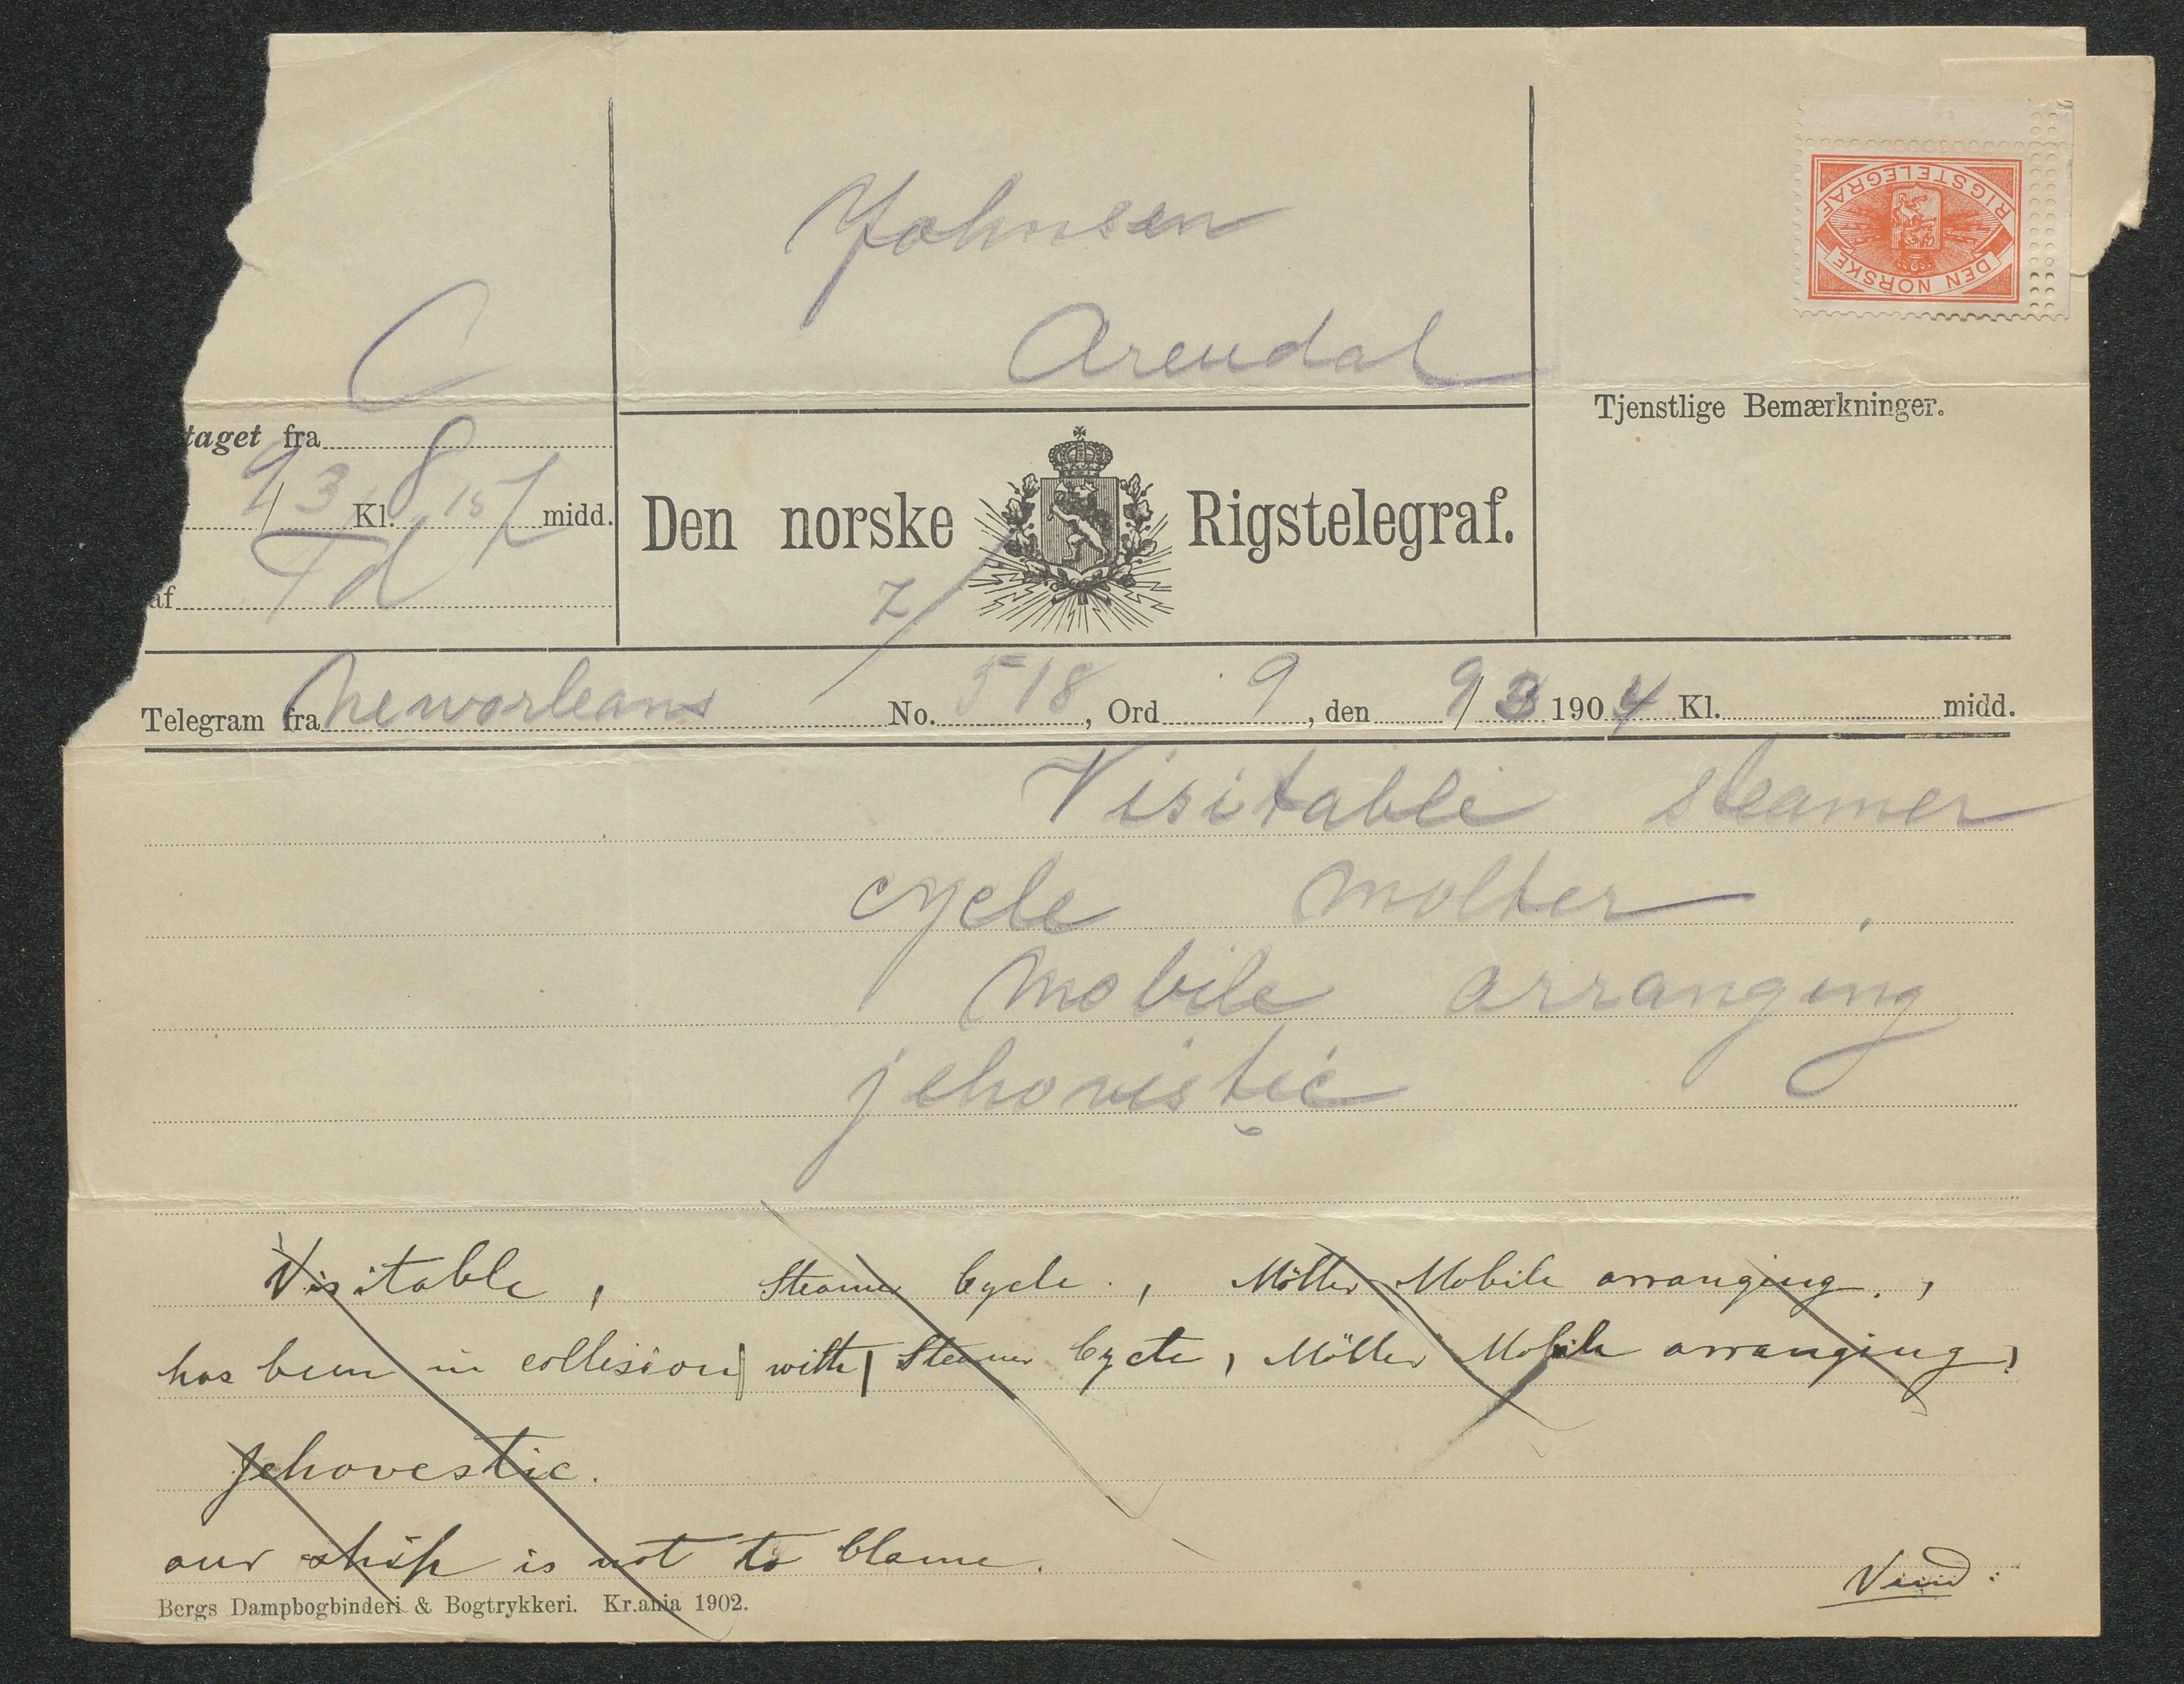 Johnsen
Arendal
DEN NORSKE
RIGSTELEGRAF
C
taget fra
9/3 Kl. 8 15 midd.
Td
af
Tjenstlige Bemærkninger.
Den norske Rigstelegraf.
Telegram fra neworleans No. 518, Ord 9, den 9/3 1904 Kl. midd.
Visitable steamer
cycle moller
mobile arranging
jehovistic
Visitable, Steamer Cycle., Möller Mobile arranging.,
has been in collision with Steamer Cycle, Möller Mobile arranging,
Jehovestic.
our ship is not to blame.
Vend:
Bergs Dampbogbinderi & Bogtrykkeri. Kr.ania 1902.